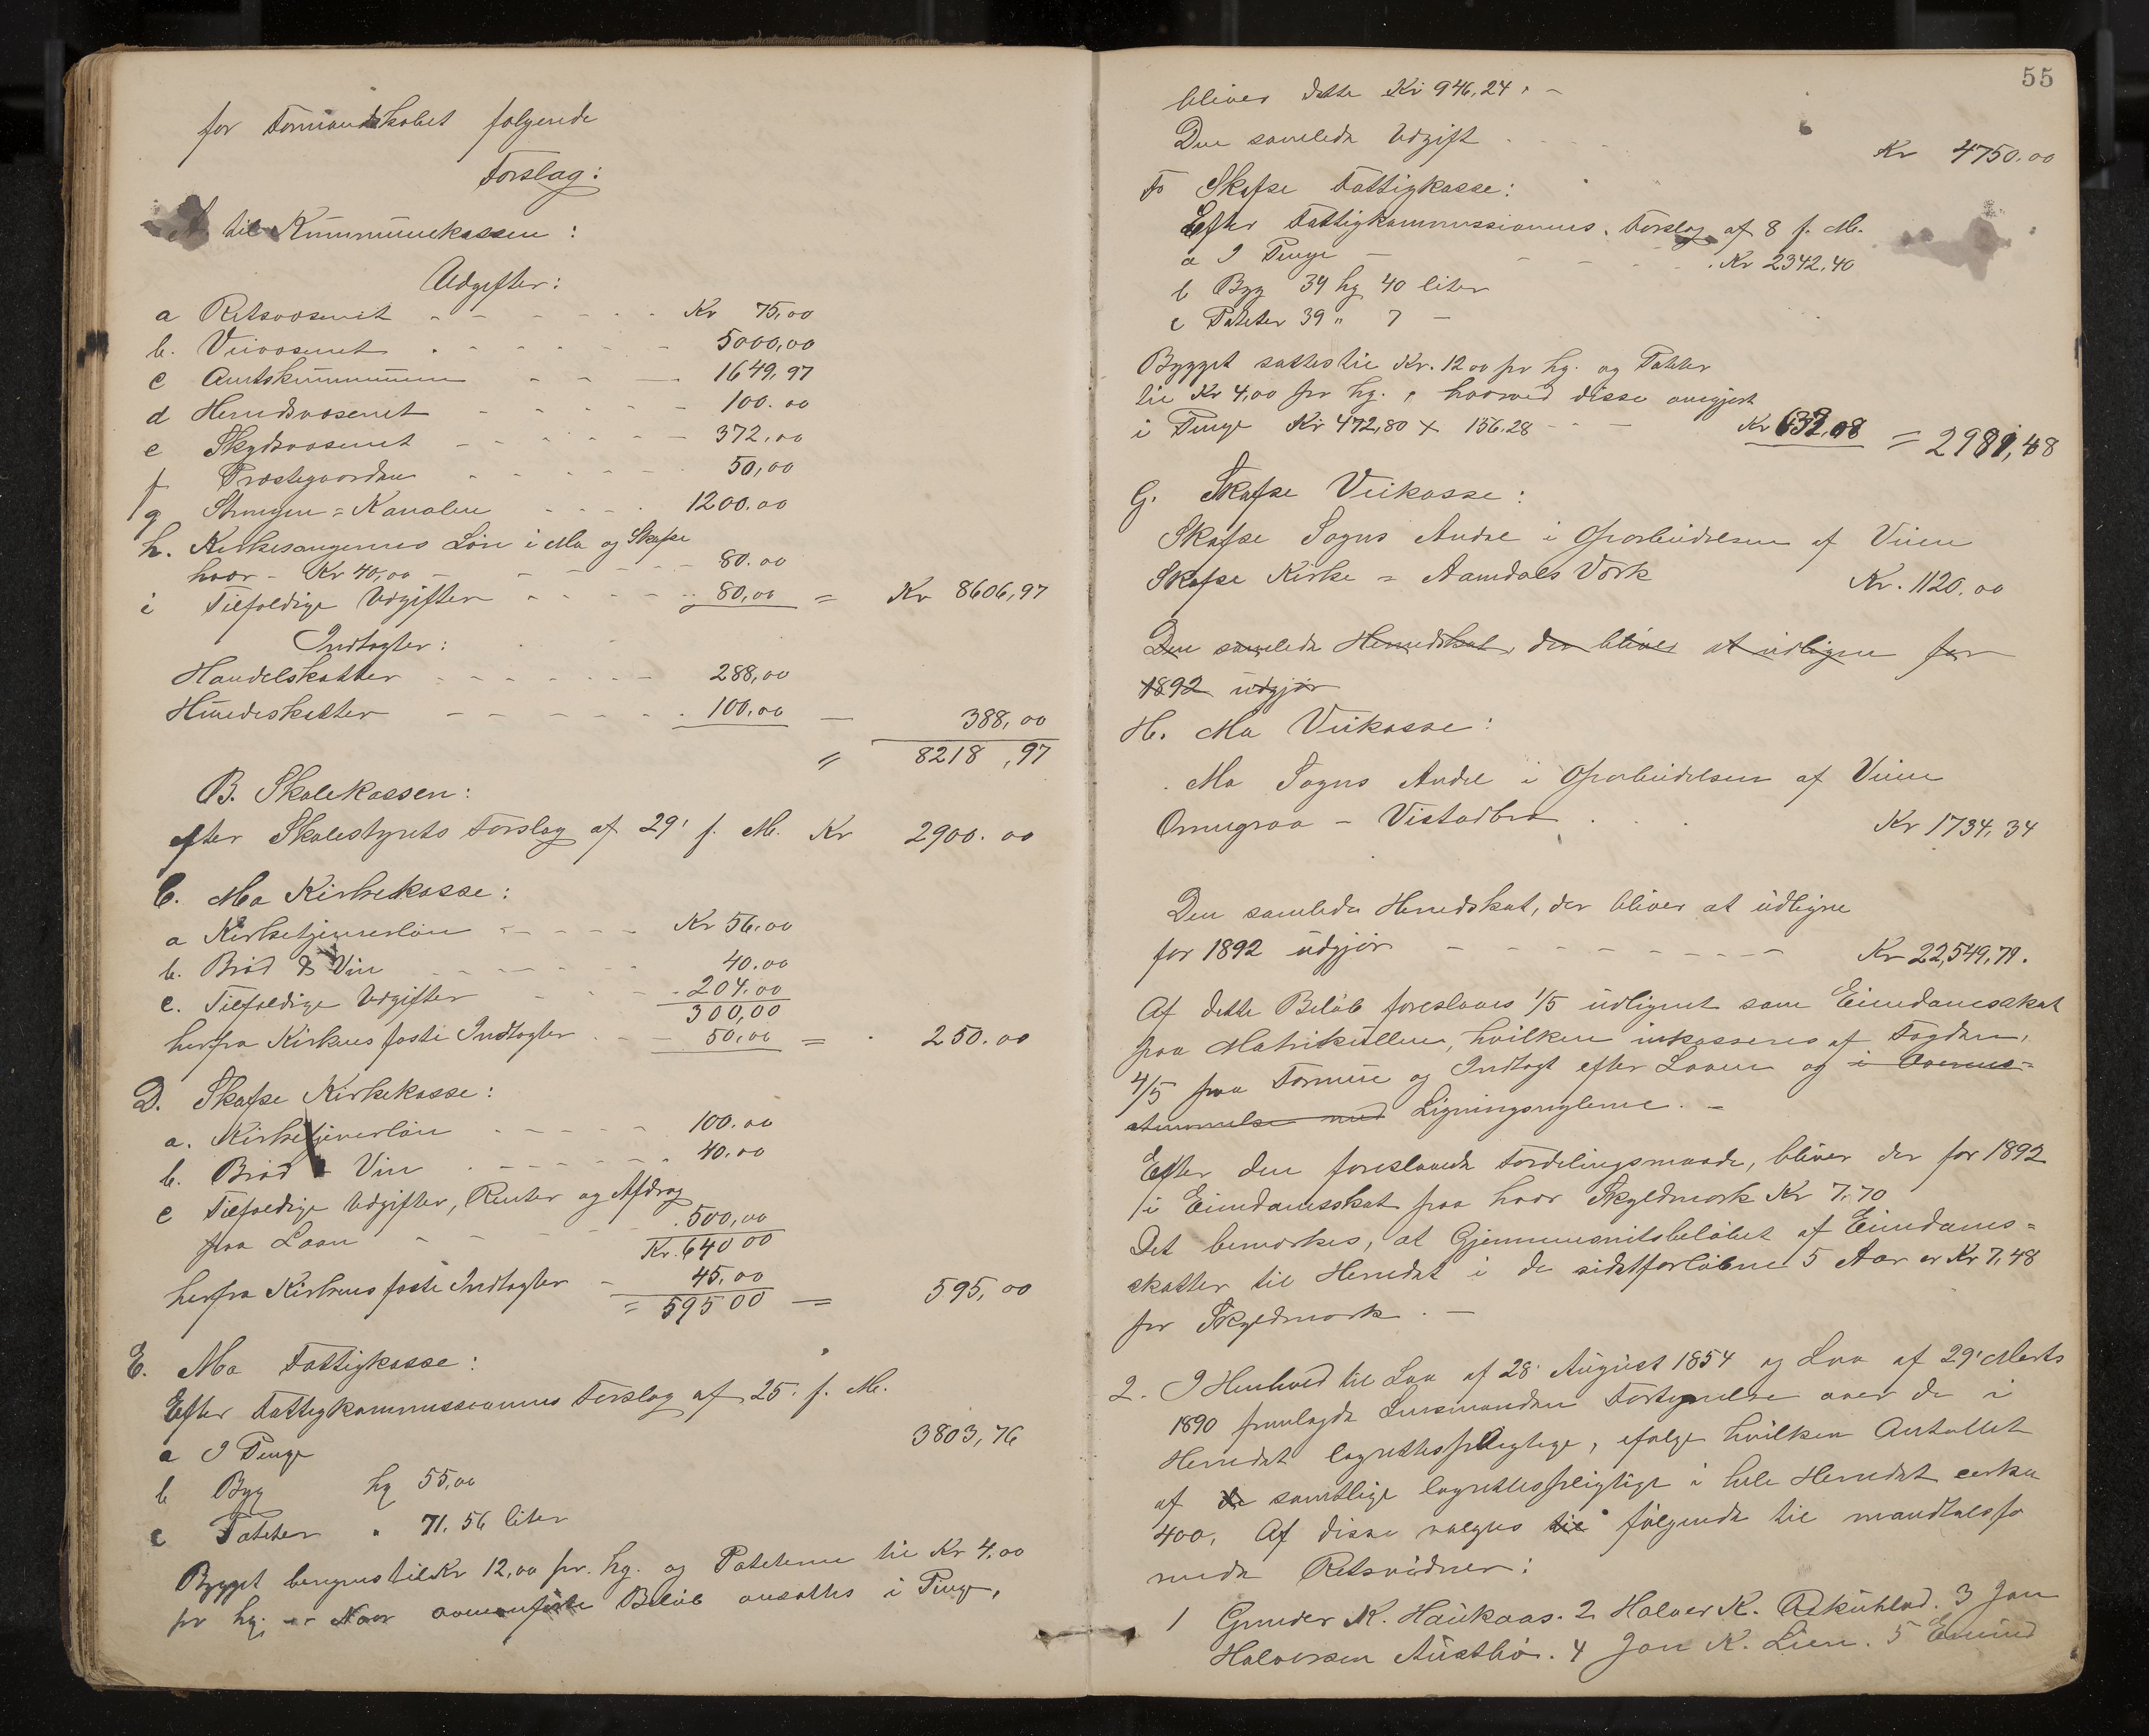 for Formandskabet følgende
Forslag:
A. til Kummunekassen:
Udgifter:
a Retsvæsenet - - - - - - Kr 75,00
b. Veivæsenet - - - - - - 5000,00
c Amtskummunen - - - 1649,97
d Herredsvæsenet - - - - - 100.00
e Skydsvæsenet - - - - - - 372,00
f Præstegaarden - - - - - 50,00
g Straugen = Kanalen - - - - 1200.00
h. Kirkesangernes Løn i Mo og Skafse
hver - Kr 40,00 - - - - - - 80.00
i Tilfældige Udgifter - - - - - 80,00 = Kr 8606,97
Indtægter:
Handelskatter - - - - - - - 288,00
Hundeskatter - - - - - - 100,00 — 388,00
= 8218,97
B. Skolekassen:
efter Skolestyrets Forslag af 29' f. M. Kr 2900.00
C. Mo Kirkekasse:
a Kirketjenerløn - - - - - Kr 56.00
b. Brød & Vin - - - - - 40.00
c. Tilfældige Udgifter - - - 204.00
300,00
herfra Kirkens faste Indtægter - - 50,00 = 250.00
D. Skafse Kirkekasse:
a. Kirketjenerløn - - - - - 100.00
b. Brød & Vin - - - - - - 40.00
c Tilfældige Udgifter, Renter og Afdrag
paa Laan - - - - - 500,00
Kr. 640 00
herfra Kirkens faste Indtægter - 45,00
= 595 00 — 595,00
E. Mo Fattigkasse:
Efter Fattigkommissionens Forslag af 25. f. M.
a I Penge 3803,76
b Byg hg 55,00
c Poteter " 71.56 liter
Bygget beregnes til Kr 12,00 pr. hg. og Poteterne til Kr 4,00
pr hg. Naar ovenanførte Beløb ansættes i Penge,
55
bliver dette Kr 946,24. -
Den samlede Udgift - - - - Kr 4750.00
F. Skafse Fattigkasse:
Efter Fattigkommissionens Forslag af 8 f. M.
a I Penge - - - - Kr 2342,40
b Byg 39 hg 40 liter
c Poteter 39 " 7 -
Bygget sættes til Kr. 12 00 pr hg. og Poteter
til Kr 4,00 pr hg., hvorved disse omgjort
i Penge Kr 472,80 + 156.28 - - Kr 639,08 = 2981,48
G. Skafse Veikasse:
Skafse Sogns Andel i Oparbeidelsen af Veien
Skafse Kirke = Aamdals Værk Kr. 1120.00
Den samlede Herredskat, der bliver at udligne for
1892 udgjør
H. Mo Veikasse:
Mo Sogns Andel i Oparbeidelsen af Veien
Ormgraa - Vistadbro - - Kr 1734,34
Den samlede Herredskat, der bliver at udligne
for 1892 udgjør - - - - - - - - Kr 22,549,79.
Af dette Beløb foreslaaes 1/5 udlignet som Eiendomsskat
paa Matrikullen, hvilken inkasseres af Fogden,
4/5 paa Formue og Indtægt efter Loven og i Overens-
stemmelse med Ligningsreglerne. -
Efter den foreslaaede Fordelingsmaade, bliver der for 1892
i Eiendomsskat paa hver Skyldmark Kr 7.70
Det bemærkes, at Gjennemsnitsbeløbet af Eiendoms=
skatter til Herredet i de sidstforløbne 5 Aar er Kr 7,48
pr Skyldmark. -
2. I Henhold til Lov af 28 August 1854 og Lov af 29' Marts
1890 fremlagde Lensmanden Fortegnelse over de i
Herredet lagrettespligtige, ifølge hvilken Antallet
af de samtlige lagrettespligtige i hele Herredet cirka
400. Af disse valgtes til følgende til mandtalsfø
rende Retsvidner:
1 Gunder K. Haukaas. 2 Halvor K. 3 Jon
Halvorsen Austbø. 4 Jon K. Lien. 5 Eivind